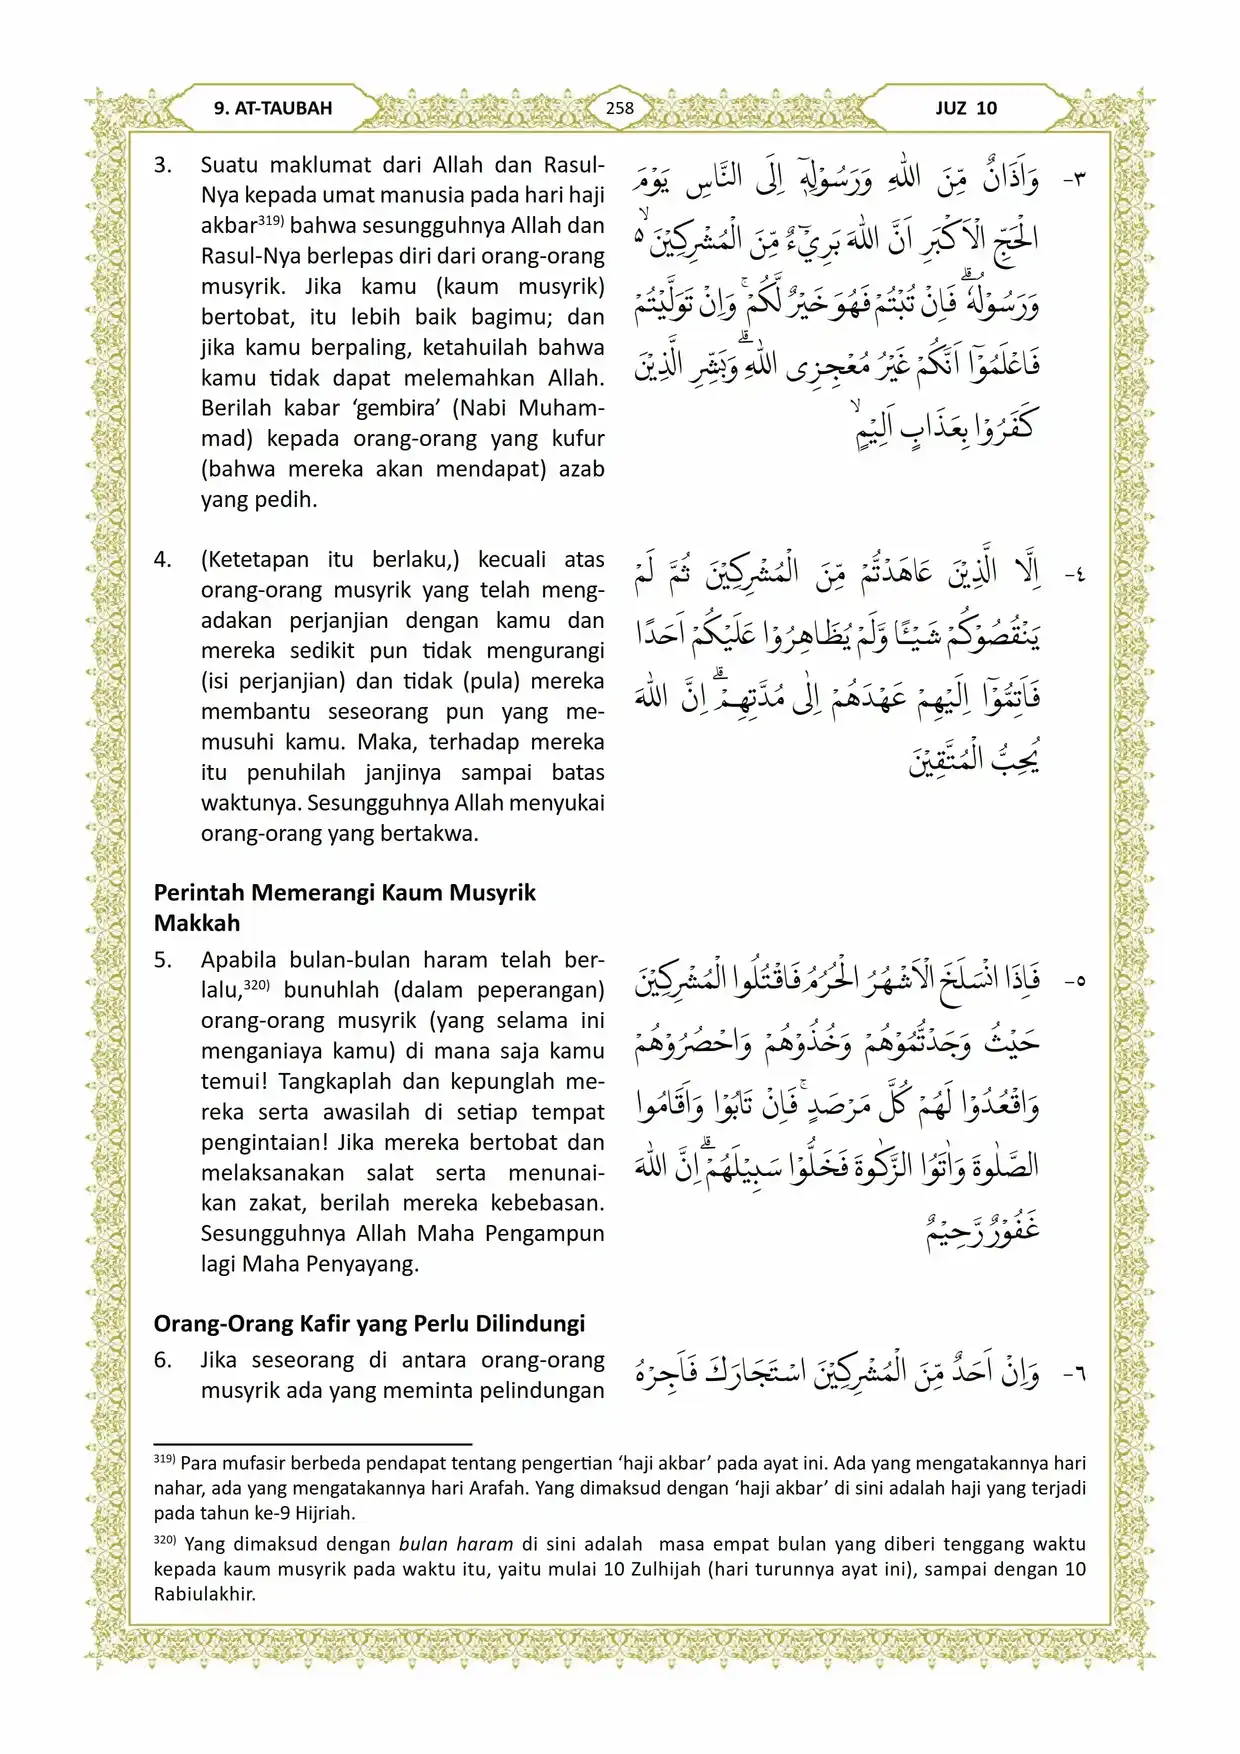 9. AT-TAUBAH
258
JUZ 10
3. Suatu maklumat dari Allah dan Rasul-
Nya kepada umat manusia pada hari haji
akbar319) bahwa sesungguhnya Allah dan
Rasul-Nya berlepas diri dari orang-orang
musyrik. Jika kamu (kaum musyrik)
bertobat, itu lebih baik bagimu; dan
jika kamu berpaling, ketahuilah bahwa
kamu tidak dapat melemahkan Allah.
Berilah kabar ‘gembira’ (Nabi Muham-
mad) kepada orang-orang yang kufur
(bahwa mereka akan mendapat) azab
yang pedih.
٣- وَاَذَانٌ مِّنَ اللّٰهِ وَرَسُوْلِهٖٓ اِلَى النَّاسِ يَوْمَ
الْحَجِّ الْاَكْبَرِ اَنَّ اللّٰهَ بَرِيْۤءٌ مِّنَ الْمُشْرِكِيْنَ ۙ۵
وَرَسُوْلُهٗ ۗفَاِنْ تُبْتُمْ فَهُوَ خَيْرٌ لَّكُمْ ۚوَاِنْ تَوَلَّيْتُمْ
فَاعْلَمُوْٓا اَنَّكُمْ غَيْرُ مُعْجِزِى اللّٰهِ ۗوَبَشِّرِ الَّذِيْنَ
كَفَرُوْا بِعَذَابٍ اَلِيْمٍۙ
4. (Ketetapan itu berlaku,) kecuali atas
orang-orang musyrik yang telah meng-
adakan perjanjian dengan kamu dan
mereka sedikit pun tidak mengurangi
(isi perjanjian) dan tidak (pula) mereka
membantu seseorang pun yang me-
musuhi kamu. Maka, terhadap mereka
itu penuhilah janjinya sampai batas
waktunya. Sesungguhnya Allah menyukai
orang-orang yang bertakwa.
٤- اِلَّا الَّذِيْنَ عَاهَدْتُّمْ مِّنَ الْمُشْرِكِيْنَ ثُمَّ لَمْ
يَنْقُصُوْكُمْ شَيْـًٔا وَّلَمْ يُظَاهِرُوْا عَلَيْكُمْ اَحَدًا
فَاَتِمُّوْٓا اِلَيْهِمْ عَهْدَهُمْ اِلٰى مُدَّتِهِمْۗ اِنَّ اللّٰهَ
يُحِبُّ الْمُتَّقِيْنَ
Perintah Memerangi Kaum Musyrik
Makkah
5. Apabila bulan-bulan haram telah ber-
lalu,320) bunuhlah (dalam peperangan)
orang-orang musyrik (yang selama ini
menganiaya kamu) di mana saja kamu
temui! Tangkaplah dan kepunglah me-
reka serta awasilah di setiap tempat
pengintaian! Jika mereka bertobat dan
melaksanakan salat serta menunai-
kan zakat, berilah mereka kebebasan.
Sesungguhnya Allah Maha Pengampun
lagi Maha Penyayang.
٥- فَاِذَا انْسَلَخَ الْاَشْهُرُ الْحُرُمُ فَاقْتُلُوا الْمُشْرِكِيْنَ
حَيْثُ وَجَدْتُّمُوْهُمْ وَخُذُوْهُمْ وَاحْصُرُوْهُمْ
وَاقْعُدُوْا لَهُمْ كُلَّ مَرْصَدٍۚ فَاِنْ تَابُوْا وَاَقَامُوا
الصَّلٰوةَ وَاٰتَوُا الزَّكٰوةَ فَخَلُّوْا سَبِيْلَهُمْۗ اِنَّ اللّٰهَ
غَفُوْرٌ رَّحِيْمٌ
Orang-Orang Kafir yang Perlu Dilindungi
6. Jika seseorang di antara orang-orang
musyrik ada yang meminta pelindungan
٦- وَاِنْ اَحَدٌ مِّنَ الْمُشْرِكِيْنَ اسْتَجَارَكَ فَاَجِرْهُ
319) Para mufasir berbeda pendapat tentang pengertian ‘haji akbar’ pada ayat ini. Ada yang mengatakannya hari
nahar, ada yang mengatakannya hari Arafah. Yang dimaksud dengan ‘haji akbar’ di sini adalah haji yang terjadi
pada tahun ke-9 Hijriah.
320) Yang dimaksud dengan bulan haram di sini adalah masa empat bulan yang diberi tenggang waktu
kepada kaum musyrik pada waktu itu, yaitu mulai 10 Zulhijah (hari turunnya ayat ini), sampai dengan 10
Rabiulakhir.